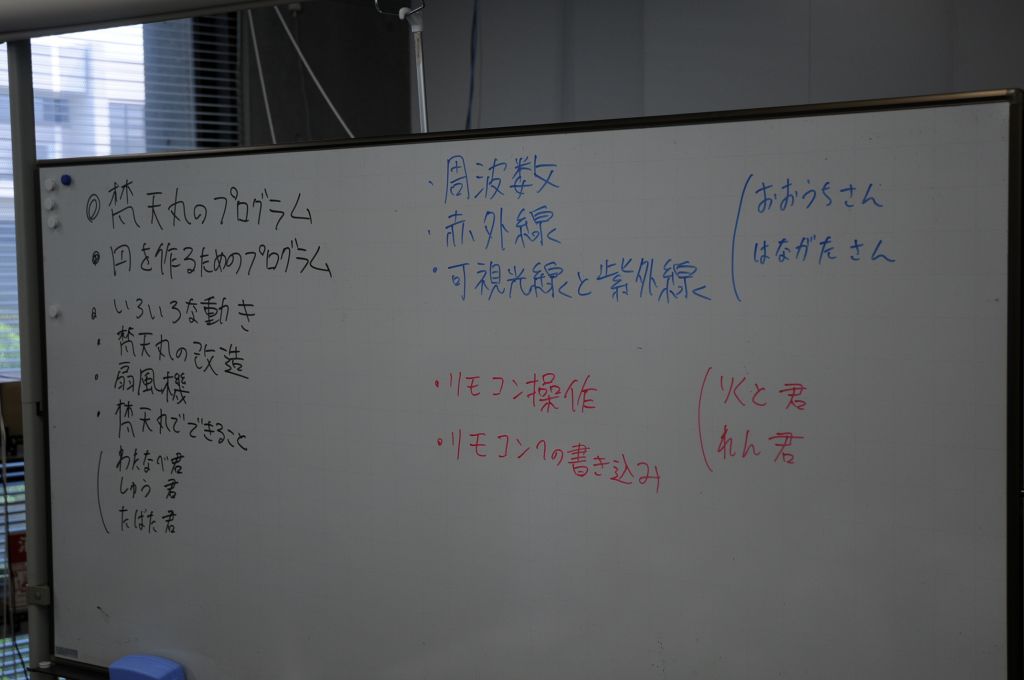 ◎梵天丸のプログラム
・円を作るためのプログラム
・いろいろな動き
・梵天丸の改造
・扇風機
・梵天丸でできること
わたなべ君
しゅう君
たばた君
・周波数
・赤外線
・可視光線と紫外線
おおうちさん
はながたさん
・リモコン操作
・リモコンへの書き込み
りくと君
れん君